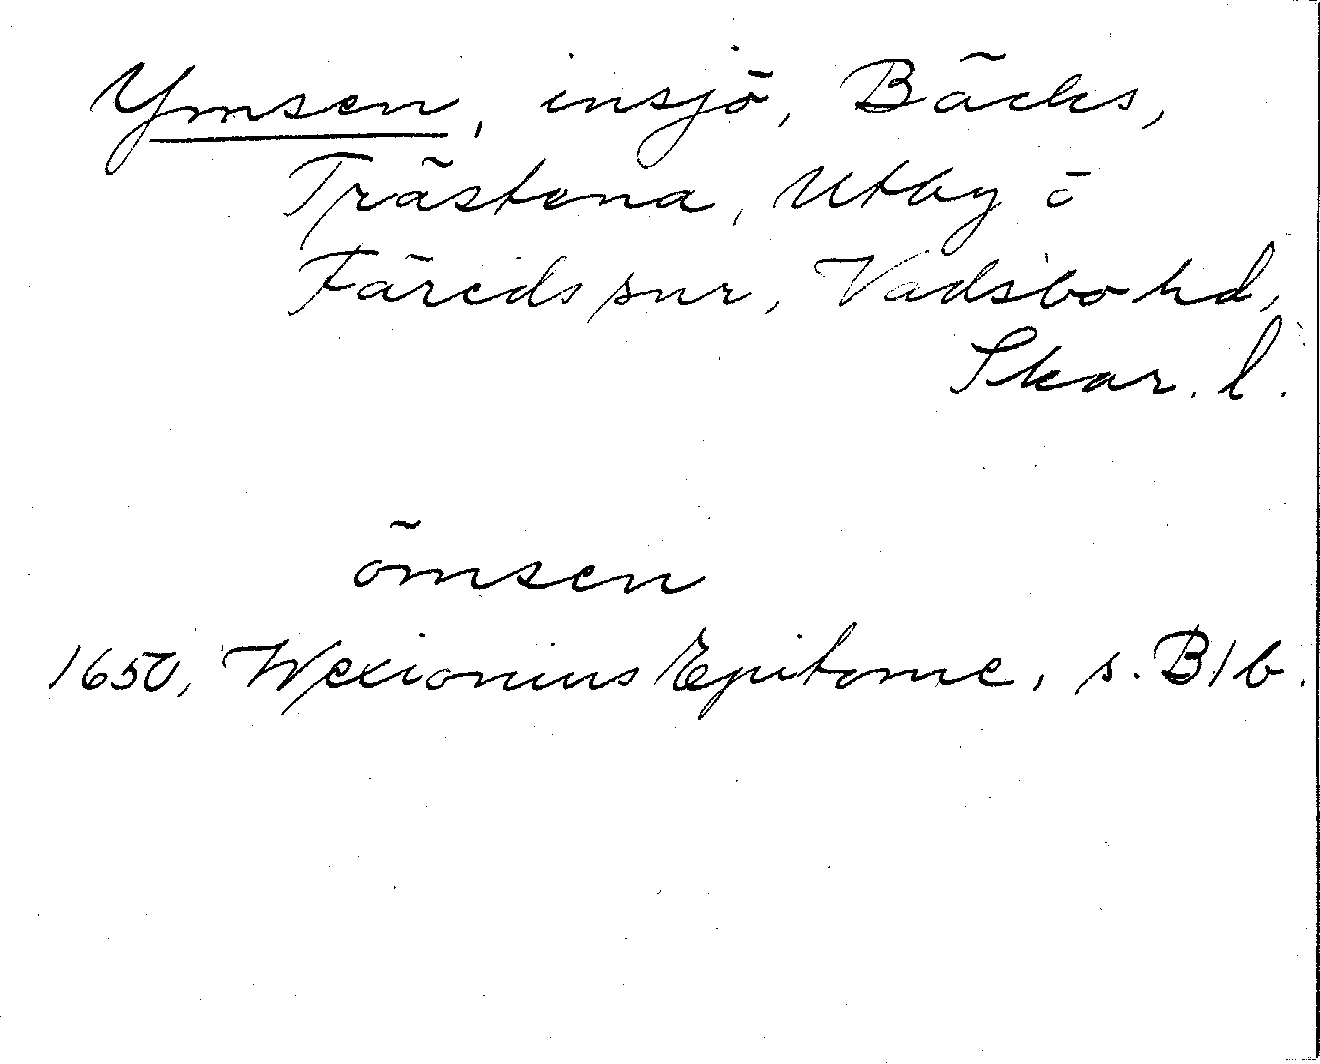 Ymsen, insjö, Bäcks,
Trästena, Utby o
Färeds snr, Vadsbo hd,
Skar. l.
ömsen
1650, Wexionius Epitome, s. B1b.